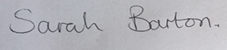 Sarah Barton.